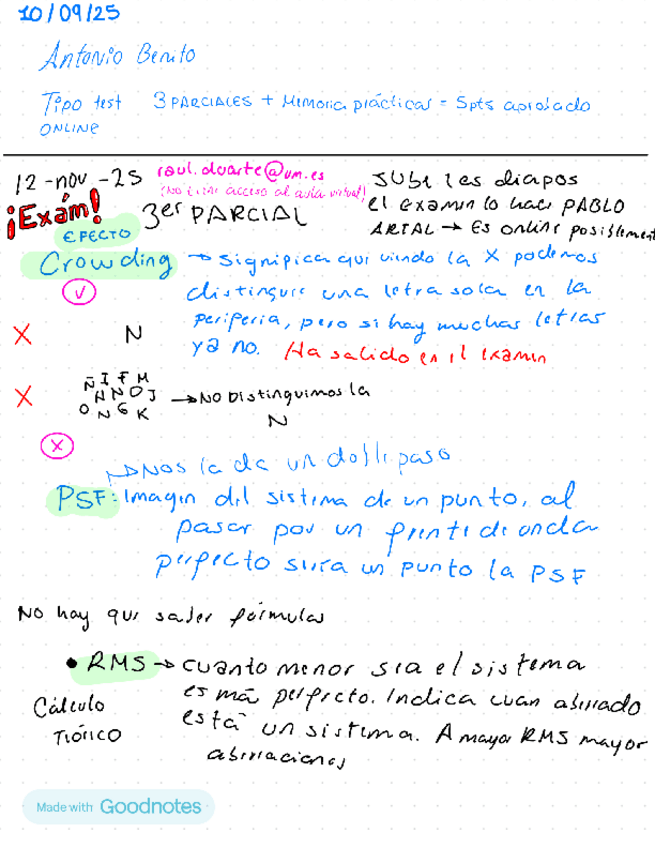 10/09/25
Antonio Benito
Tipo test 3 PARCIALES + Memoria prácticas = 5pts aprobado
ONLINE
12-nov-25 raul.duarte@um.es
(No tiene acceso al aula virtual)
SUBE las diapos
¡Exám! 3er PARCIAL
el examen lo hace PABLO
ARTAL → Es online posiblement
EFECTO
Crowding → Significa que viendo la X podemos
distinguir una letra sola en la
periferia, pero si hay muchas letras
ya no. Ha salido en el examen
✓
X N
X
Ñ I F M
N N O J
O N G K
→ NO Distinguimos la
N
X
↳ Nos la da un doble paso
PSF: Imagen del sistema de un punto, al
pasar por un frente de onda
perfecto sería un punto la PSF
No hay que saber fórmulas
• RMS → cuanto menor sea el sistema
es má perfecto. Indica cuan aberrado
está un sistema. A mayor RMS mayor
aberraciones
Cálculo
Teórico
Made with Goodnotes